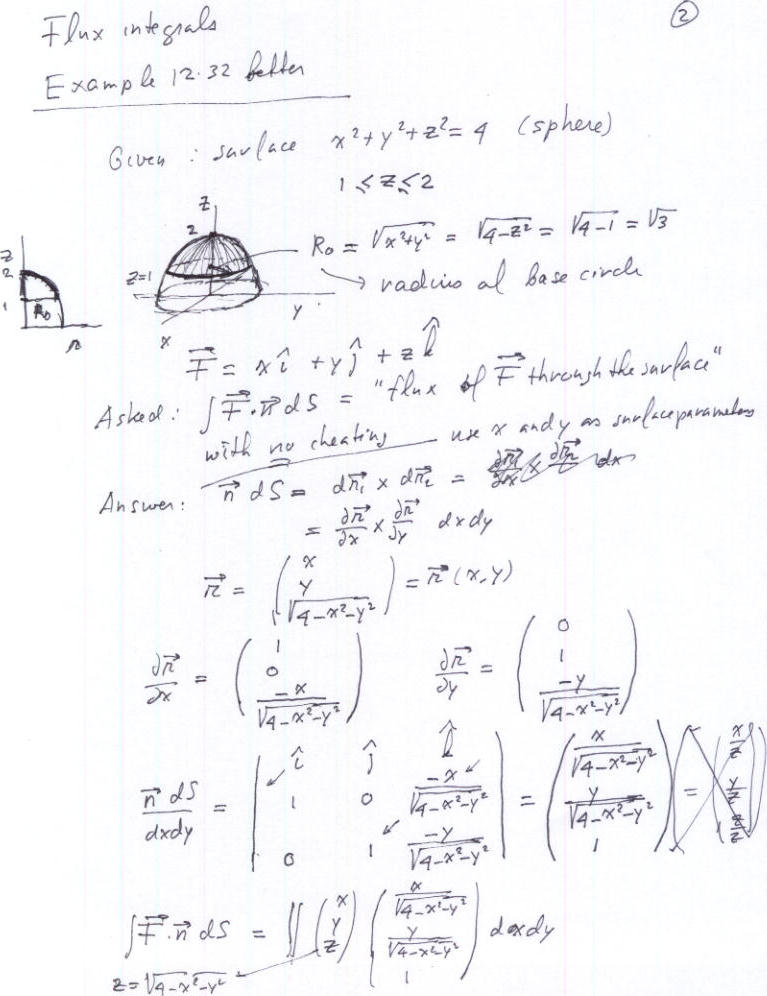 ②
Flux integrals
Example 12.32 better
Given : surface x²+y²+z²= 4 (sphere)
1 ≤ z ≤ 2
z
2
z=1
y
x
z
2
1
R₀
r
R₀ = √(x²+y²) = √(4-z²) = √(4-1) = √3
→ radius of base circle
F⃗ = x î + y ĵ + z k̂
Asked: ∫ F⃗ · n⃗ dS = "flux of F⃗ through the surface"
with no cheating use x and y as surface parameters
Answer: n⃗ dS = dr⃗₁ × dr⃗₂ =
= ∂r⃗/∂x × ∂r⃗/∂y dxdy
r⃗ = ( x y √(4-x²-y²) ) = r⃗ (x,y)
∂r⃗/∂x = ( 1 0 -x/√(4-x²-y²) ) ∂r⃗/∂y = ( 0 1 -y/√(4-x²-y²) )
n⃗ dS/dxdy = | î ĵ k̂ 1 0 -x/√(4-x²-y²) 0 1 -y/√(4-x²-y²) | = ( x/√(4-x²-y²) y/√(4-x²-y²) 1 ) = ( x/z y/z z/z )
∫ F⃗ · n⃗ dS = ∬ ( x y z ) ( x/√(4-x²-y²) y/√(4-x²-y²) 1 ) dxdy
z = √(4-x²-y²)